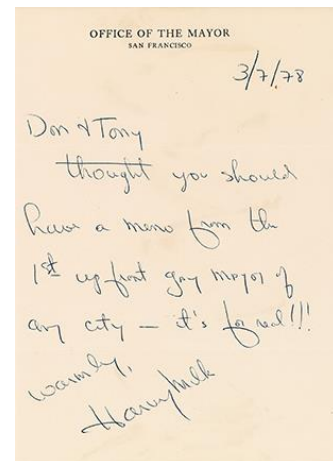 OFFICE OF THE MAYOR
SAN FRANCISCO
3/7/78
Don & Tony
thought you should
have a memo from the
1st up front gay mayor of
any city — it's for real!!!
warmly,
Harvey Milk